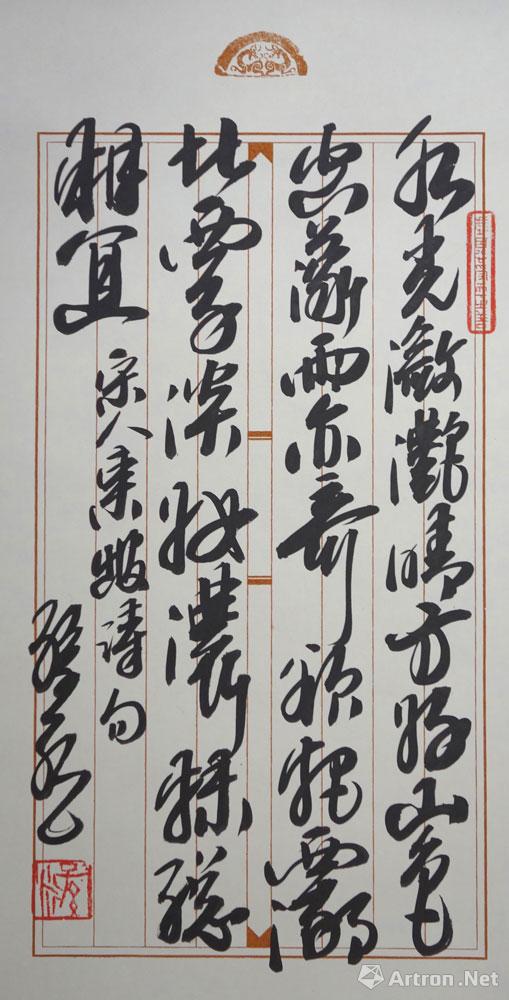 水光瀲灩晴方好山色
空蒙雨亦奇欲把西湖
比西子淡妝濃抹總
相宜 宋人東坡詩句
Artron.Net